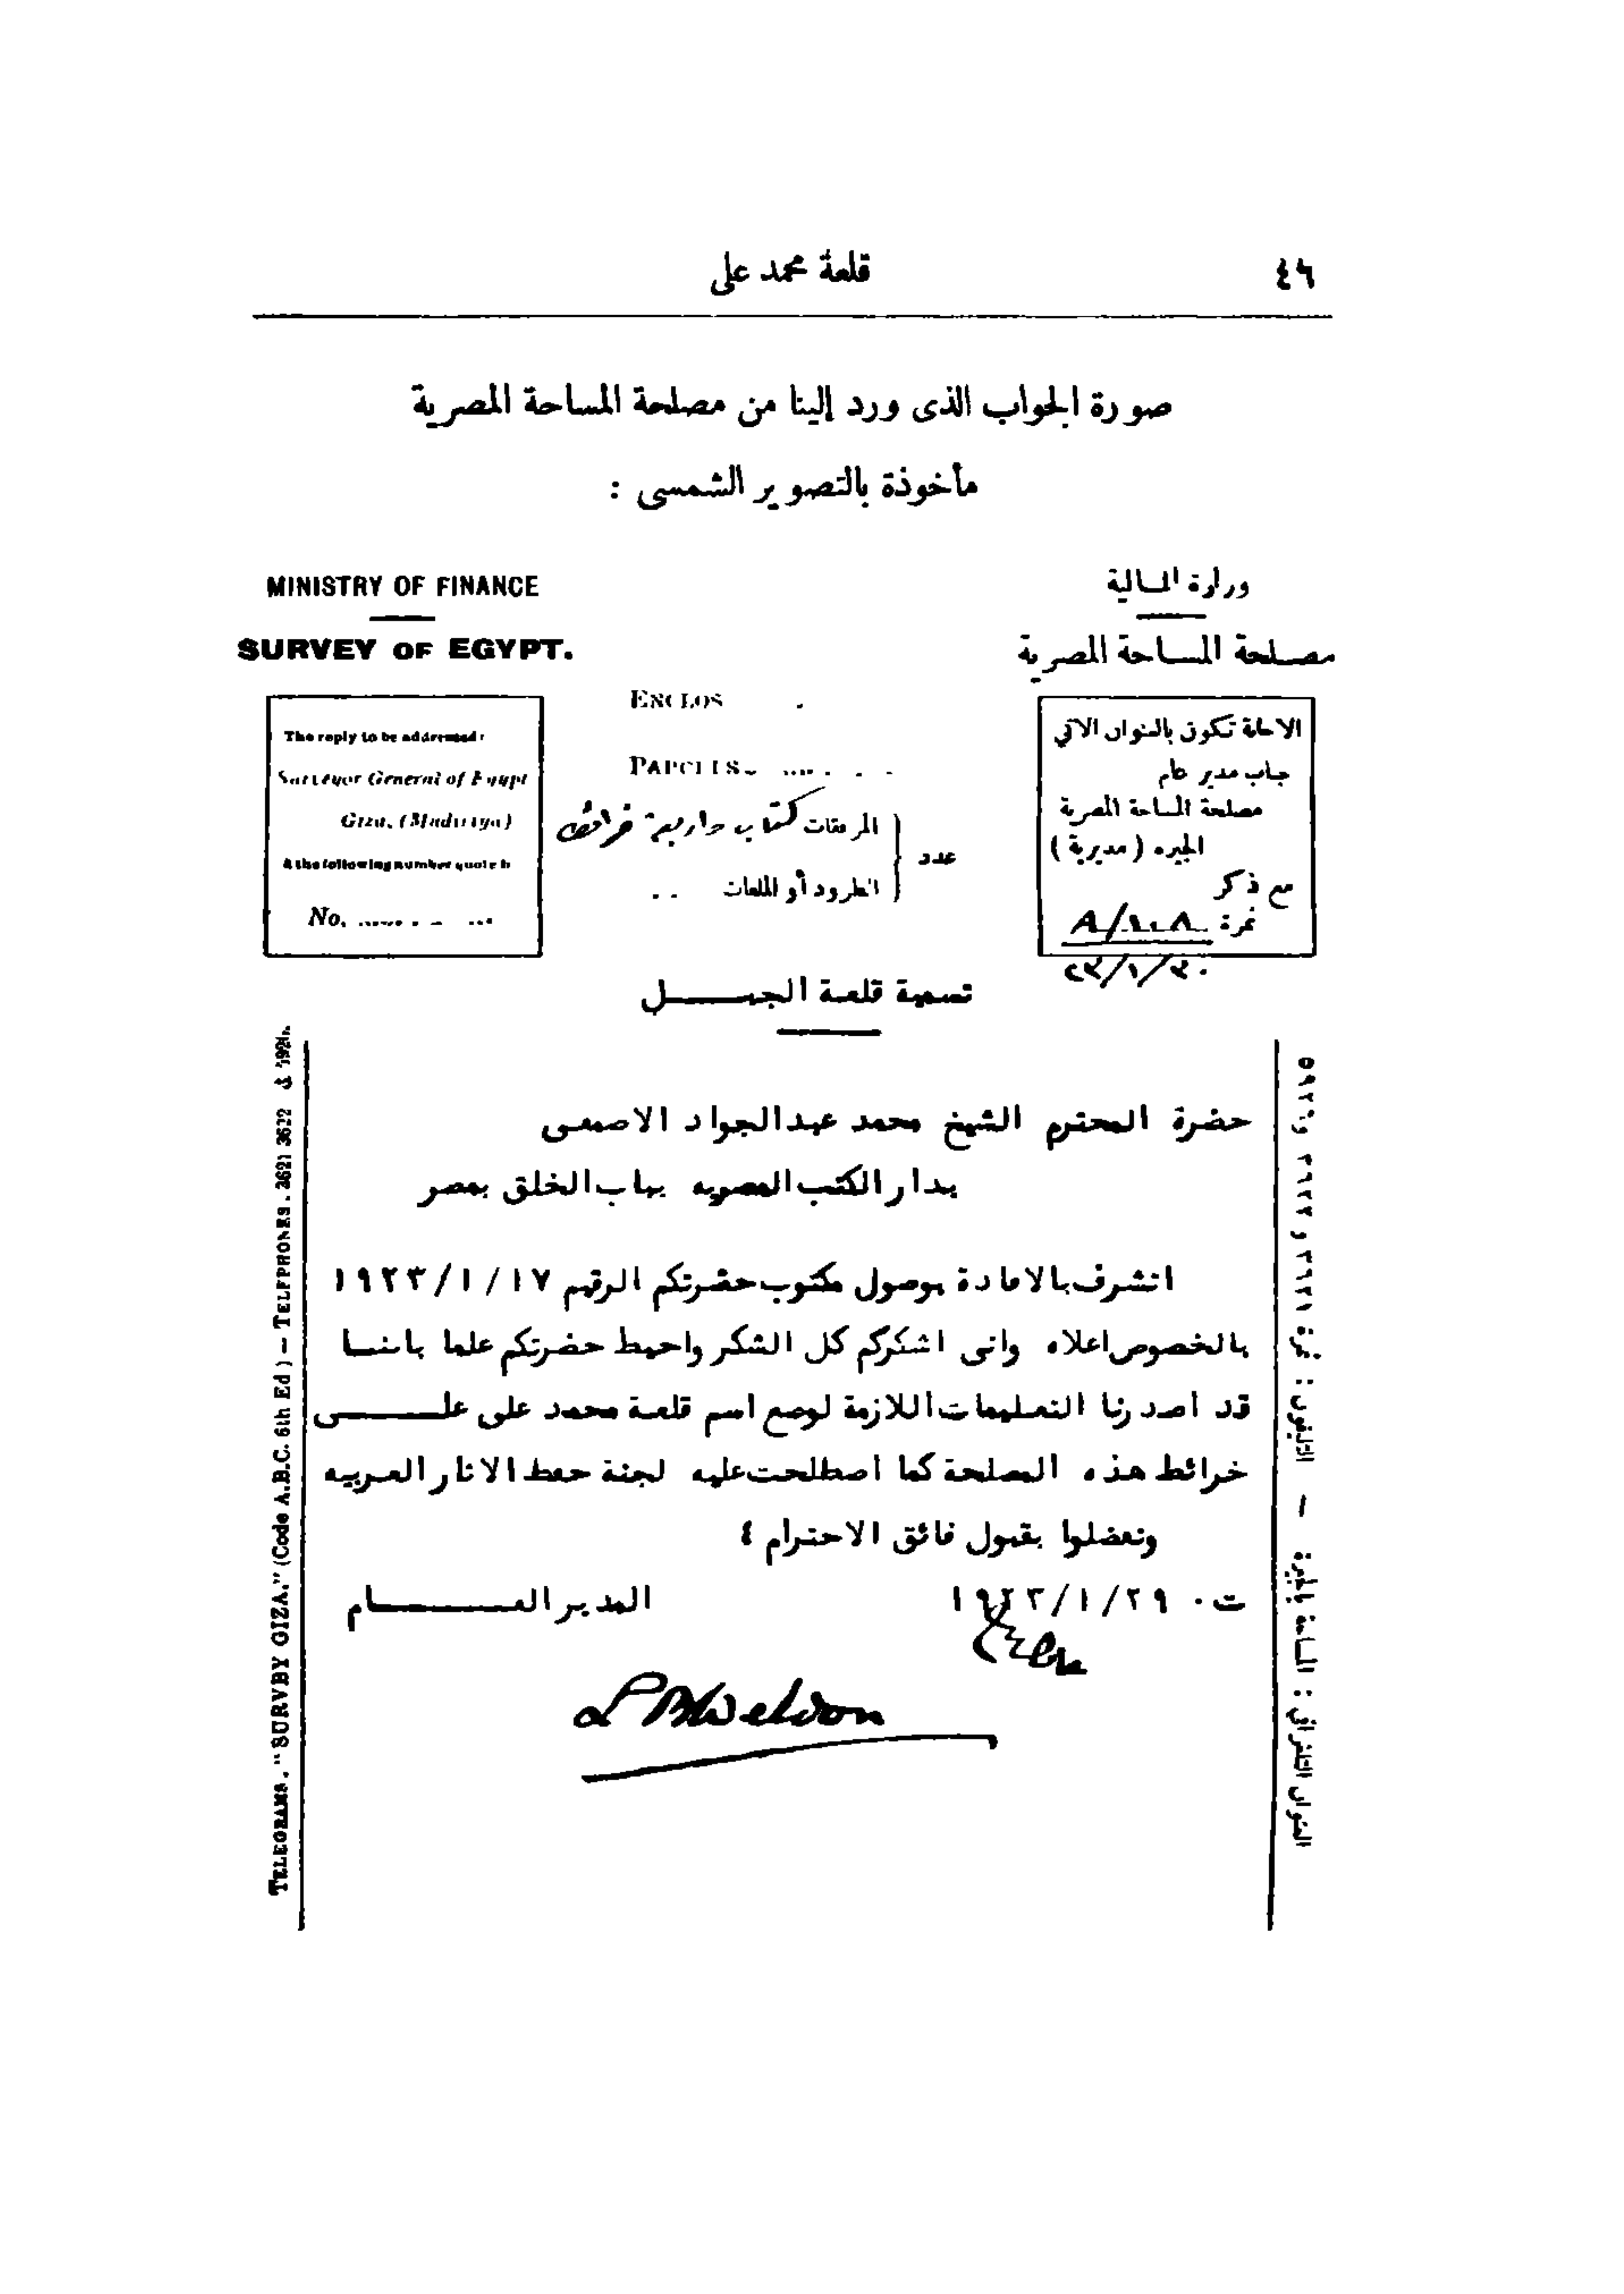 ٤٦
قلعة محمد على
صورة الجواب الذى ورد إلينا من مصلحة المساحة المصرية
مأخوذة بالتصوير الشمسى :
MINISTRY OF FINANCE
SURVEY OF EGYPT.
The reply to be addressed:
Surveyor General of Egypt
Giza, (Mudiriya)
& the following number quoted
No.
ENCLOS
PARCELS
عدد
المرفقات كتاب واربعة خرائط
الطرود أو الملفات
وزارة المالية
مصلحة المساحة المصرية
الاجابة تكون بالعنوان الاتي
جناب مدير عام
مصلحة المساحة المصرية
الجيزه (مديرية)
مع ذكر
نمرة ٨/١٠٨
٢٣/١/٣٠
تسمية قلعة الجبـــل
حضرة المحترم الشيخ محمد عبدالجواد الاصمعى
بدار الكتب المصريه بباب الخلق بمصر
اتشرف بالافادة بوصول مكتوب حضرتكم الرقيم ١٧ / ١ /١٩٢٣
بالخصوص اعلاه وانى اشكركم كل الشكر واحيط حضرتكم علما باننـا
قد اصدرنا التعليمات اللازمة لوضع اسم قلعة محمد على علـــى
خرائط هذه المصلحة كما اصطلحت عليه لجنة حفظ الاثار العربيه
وتفضلوا بقبول فائق الاحترام ؛
ت٠ ١٩٢٣/١/٢٩
المدير العـــــام
TELEGRAMS, "SURVBY GIZA." (Code A.B.C. 6th Ed) — TELEPHONES. 3621 3622 & 5926.
العنوان التلغرافى : المساحة بالجيزة — التليفون : نمرة ٣٦٢١ و ٣٦٢٢ و ٥٩٢٦